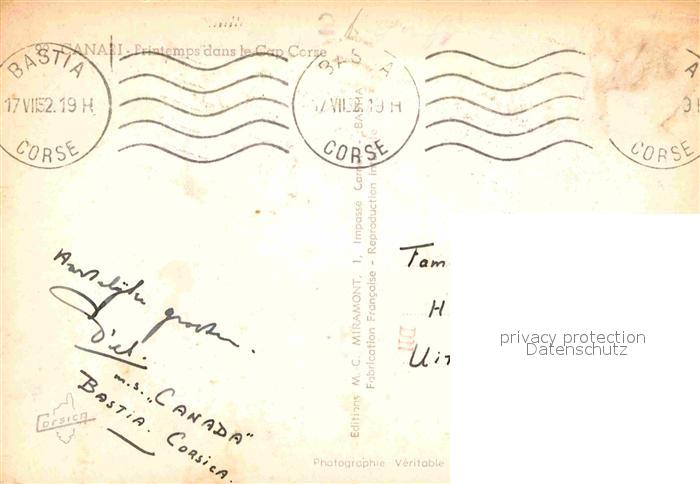 CANARI - Printemps dans le Cap Corse
BASTIA
17 VII 52. 19 H
CORSE
BASTIA
17 VII 52. 19 H
CORSE
CORSE
Hartelijke groeten.
m.s. „CANADA"
BASTIA. CORSICA.
CORSICA
Editions M. C. MIRAMONT, 1, Impasse
Fabrication Française - Reproduction
Photographie Véritable
Fam
H
Uit
privacy protection
Datenschutz